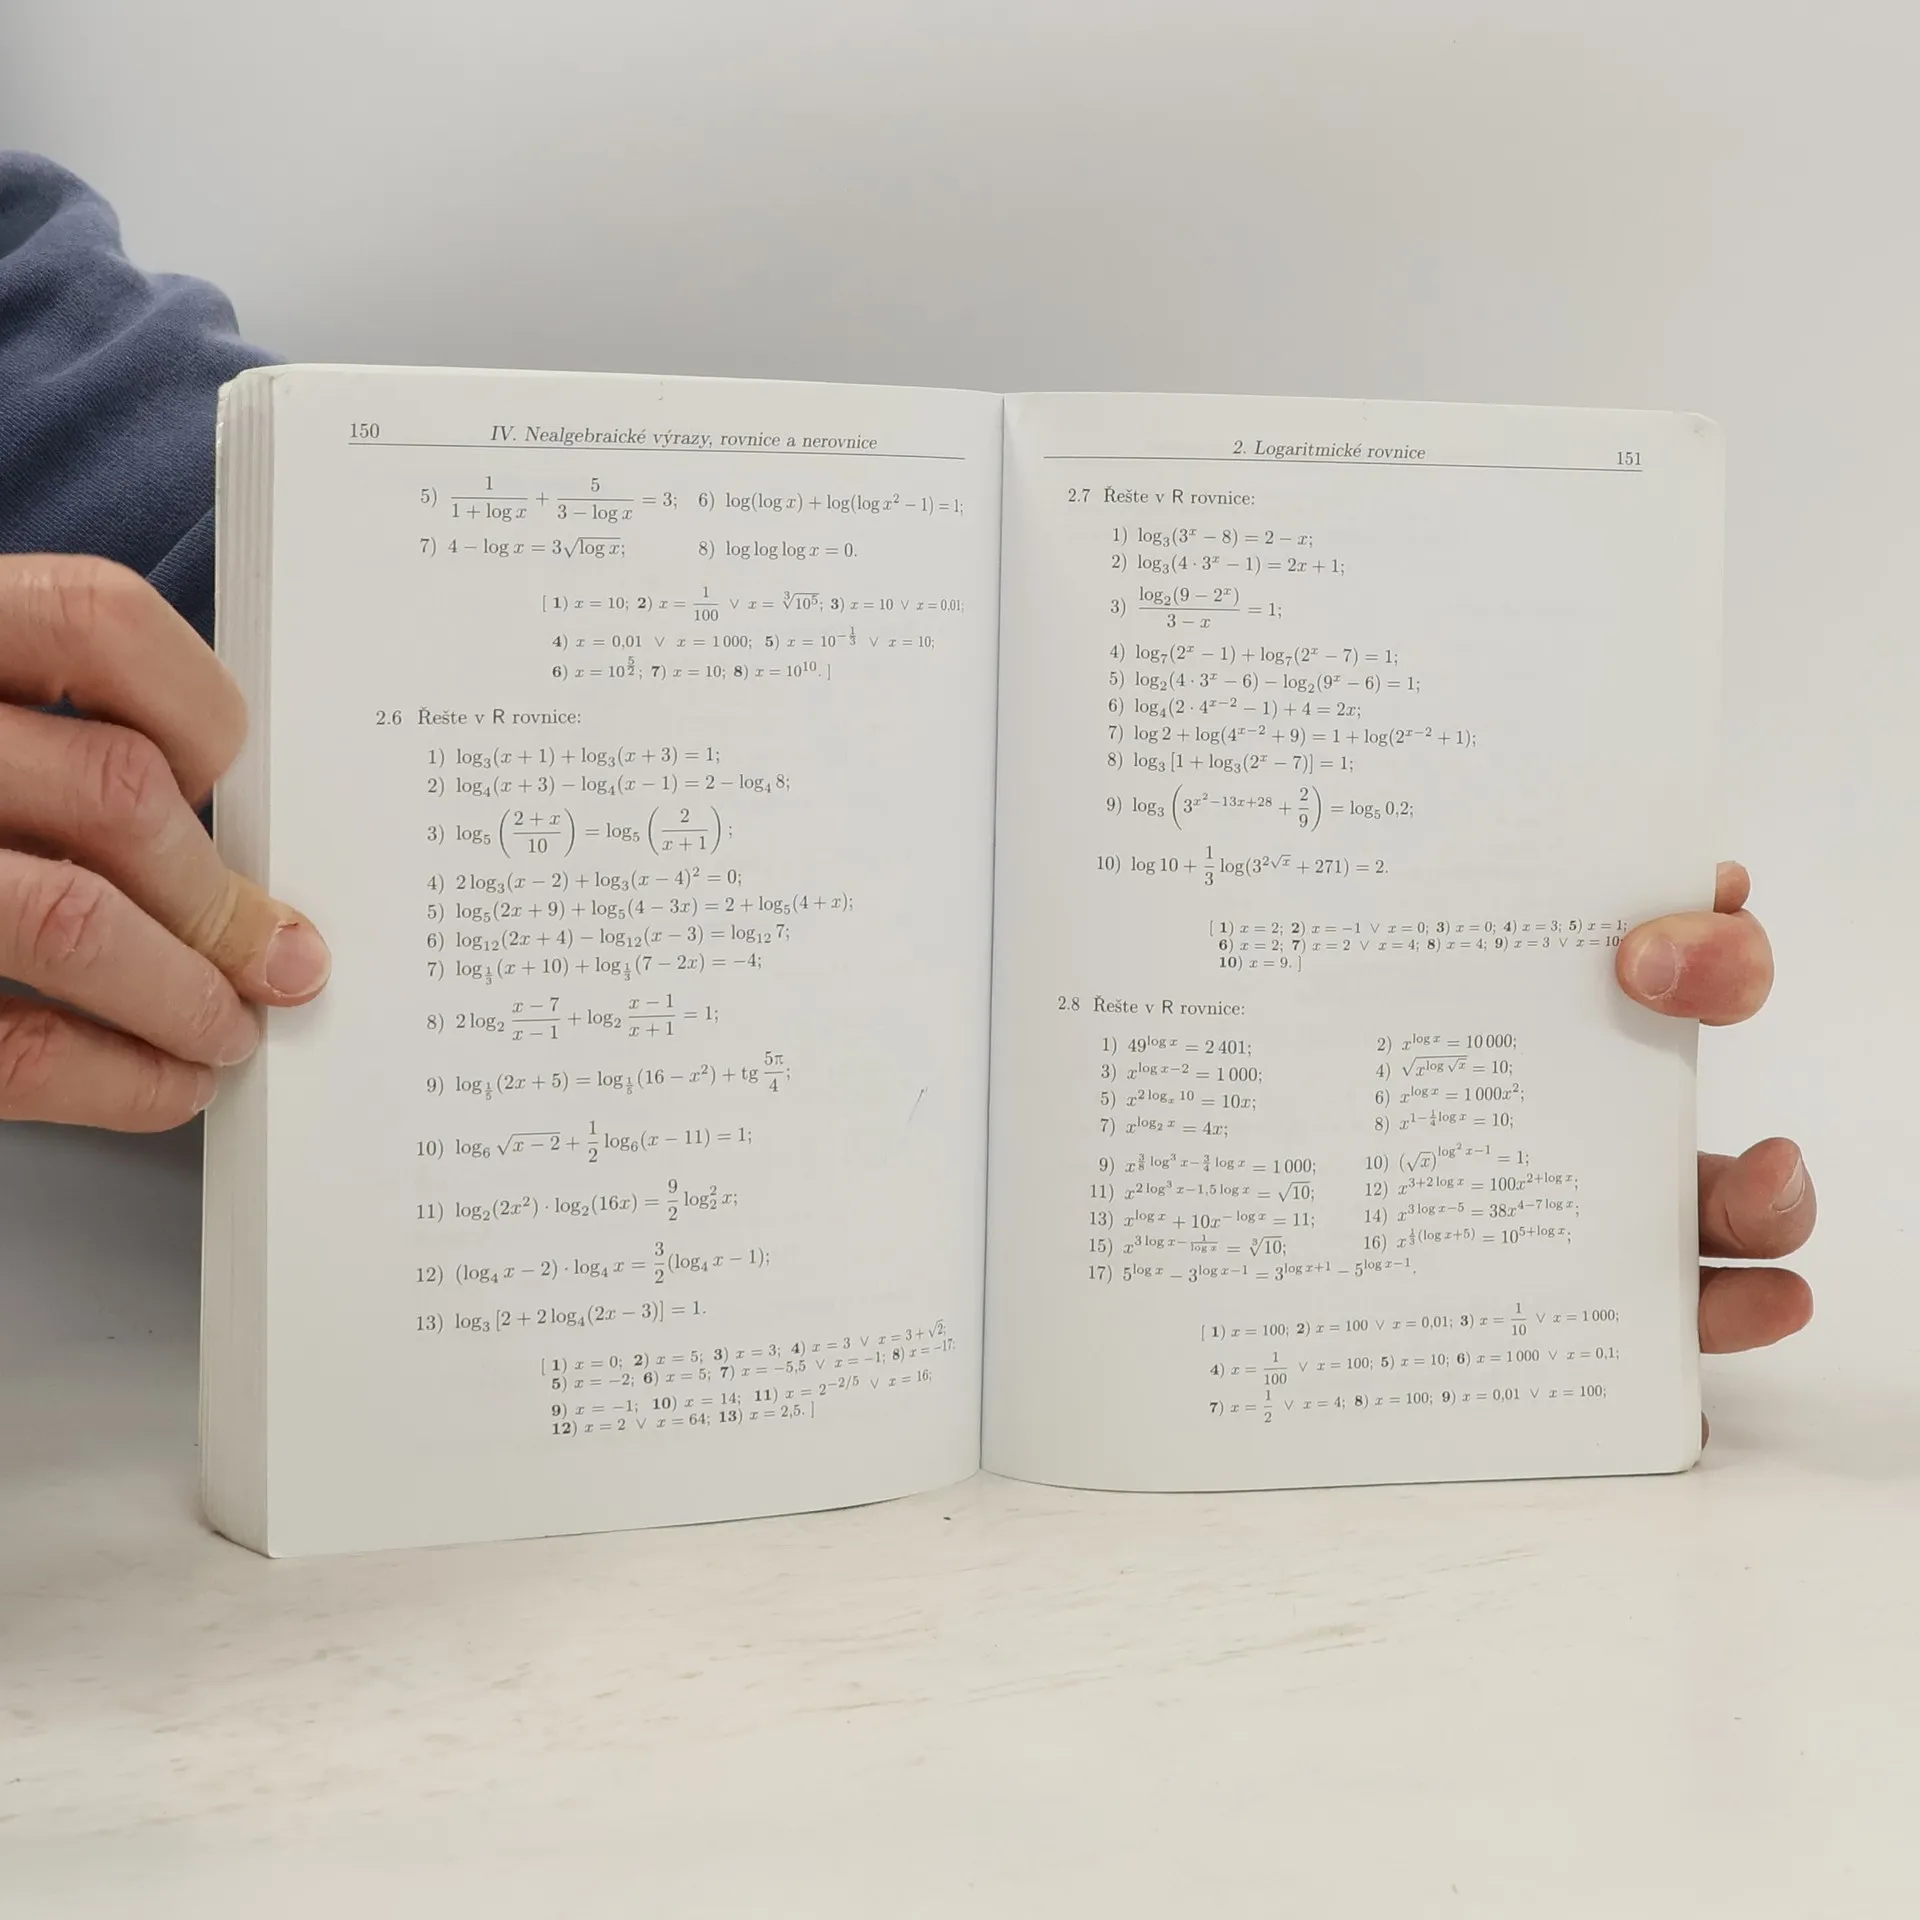 150 IV. Nealgebraické výrazy, rovnice a nerovnice
5) 1/(1 + log x) + 5/(3 − log x) = 3; 6) log(log x) + log(log x² − 1) = 1;
7) 4 − log x = 3√(log x); 8) log log log x = 0.
[ 1) x = 10; 2) x = 1/100 ∨ x = ∛(10⁵); 3) x = 10 ∨ x = 0,01;
4) x = 0,01 ∨ x = 1 000; 5) x = 10^(−1/3) ∨ x = 10;
6) x = 10^(5/2); 7) x = 10; 8) x = 10¹⁰. ]
2.6 Řešte v R rovnice:
1) log₃(x + 1) + log₃(x + 3) = 1;
2) log₄(x + 3) − log₄(x − 1) = 2 − log₄ 8;
3) log₅ ((2 + x)/10) = log₅ (2/(x + 1));
4) 2 log₃(x − 2) + log₃(x − 4)² = 0;
5) log₅(2x + 9) + log₅(4 − 3x) = 2 + log₅(4 + x);
6) log₁₂(2x + 4) − log₁₂(x − 3) = log₁₂ 7;
7) log_(1/3)(x + 10) + log_(1/3)(7 − 2x) = −4;
8) 2 log₂ (x − 7)/(x − 1) + log₂ (x − 1)/(x + 1) = 1;
9) log_(1/5)(2x + 5) = log_(1/5)(16 − x²) + tg 5π/4;
10) log₆ √(x − 2) + 1/2 log₆(x − 11) = 1;
11) log₂(2x²) · log₂(16x) = 9/2 log₂² x;
12) (log₄ x − 2) · log₄ x = 3/2 (log₄ x − 1);
13) log₃ [2 + 2 log₄(2x − 3)] = 1.
[ 1) x = 0; 2) x = 5; 3) x = 3; 4) x = 3 ∨ x = 3 + √2;
5) x = −2; 6) x = 5; 7) x = −5,5 ∨ x = −1; 8) x = −17;
9) x = −1; 10) x = 14; 11) x = 2^(−2/5) ∨ x = 16;
12) x = 2 ∨ x = 64; 13) x = 2,5. ]
2. Logaritmické rovnice 151
2.7 Řešte v R rovnice:
1) log₃(3ˣ − 8) = 2 − x;
2) log₃(4 · 3ˣ − 1) = 2x + 1;
3) log₂(9 − 2ˣ)/(3 − x) = 1;
4) log₇(2ˣ − 1) + log₇(2ˣ − 7) = 1;
5) log₂(4 · 3ˣ − 6) − log₂(9ˣ − 6) = 1;
6) log₄(2 · 4^(x−2) − 1) + 4 = 2x;
7) log 2 + log(4^(x−2) + 9) = 1 + log(2^(x−2) + 1);
8) log₃ [1 + log₃(2ˣ − 7)] = 1;
9) log₃ (3^(x²−13x+28) + 2/9) = log₅ 0,2;
10) log 10 + 1/3 log(3^(2√x) + 271) = 2.
[ 1) x = 2; 2) x = −1 ∨ x = 0; 3) x = 0; 4) x = 3; 5) x = 1;
6) x = 2; 7) x = 2 ∨ x = 4; 8) x = 4; 9) x = 3 ∨ x = 10;
10) x = 9. ]
2.8 Řešte v R rovnice:
1) 49^(log x) = 2 401; 2) x^(log x) = 10 000;
3) x^(log x−2) = 1 000; 4) √(x^(log √x)) = 10;
5) x^(2 logₓ 10) = 10x; 6) x^(log x) = 1 000x²;
7) x^(log₂ x) = 4x; 8) x^(1−(1/4) log x) = 10;
9) x^((3/8) log³ x−(3/4) log x) = 1 000; 10) (√x)^(log² x−1) = 1;
11) x^(2 log³ x−1,5 log x) = √10; 12) x^(3+2 log x) = 100x^(2+log x);
13) x^(log x) + 10x^(−log x) = 11; 14) x^(3 log x−5) = 38x^(4−7 log x);
15) x^(3 log x−1/(log x)) = ∛10; 16) x^((1/3)(log x+5)) = 10^(5+log x);
17) 5^(log x) − 3^(log x−1) = 3^(log x+1) − 5^(log x−1).
[ 1) x = 100; 2) x = 100 ∨ x = 0,01; 3) x = 1/10 ∨ x = 1 000;
4) x = 1/100 ∨ x = 100; 5) x = 10; 6) x = 1 000 ∨ x = 0,1;
7) x = 1/2 ∨ x = 4; 8) x = 100; 9) x = 0,01 ∨ x = 100;